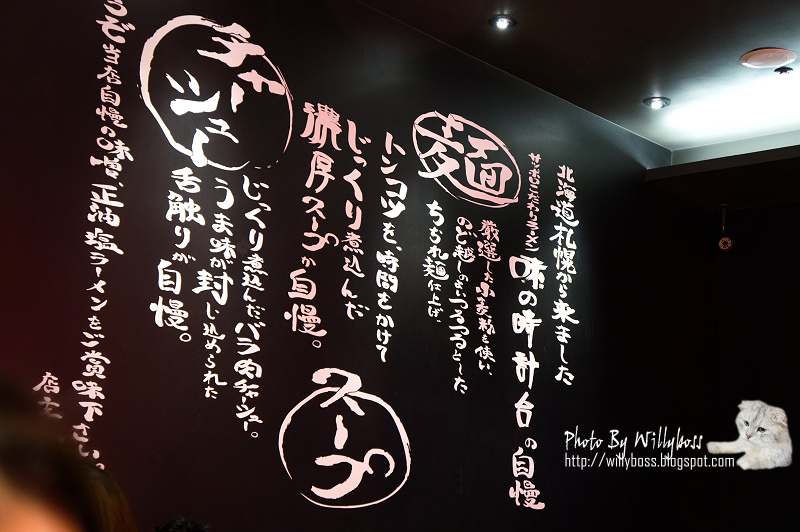 北海道札幌から来ました
こだわりラーメン 味の時計台の自慢
麺
厳選した小麦粉を使い、
のど越しのよいつるつるとした
ちぢれ麺仕上げ、
トンコツを、時間をかけて
じっくり煮込んだ
濃厚スープが自慢。
スープ
チャーシュー
じっくり煮込んだバラ肉チャシュー。
うま味が封じ込められた
舌触りが自慢。
うぞ当店自慢の味噌、正油、塩ラーメンをご賞味下さい。
店主
Photo By Willyboss
http://willyboss.blogspot.com